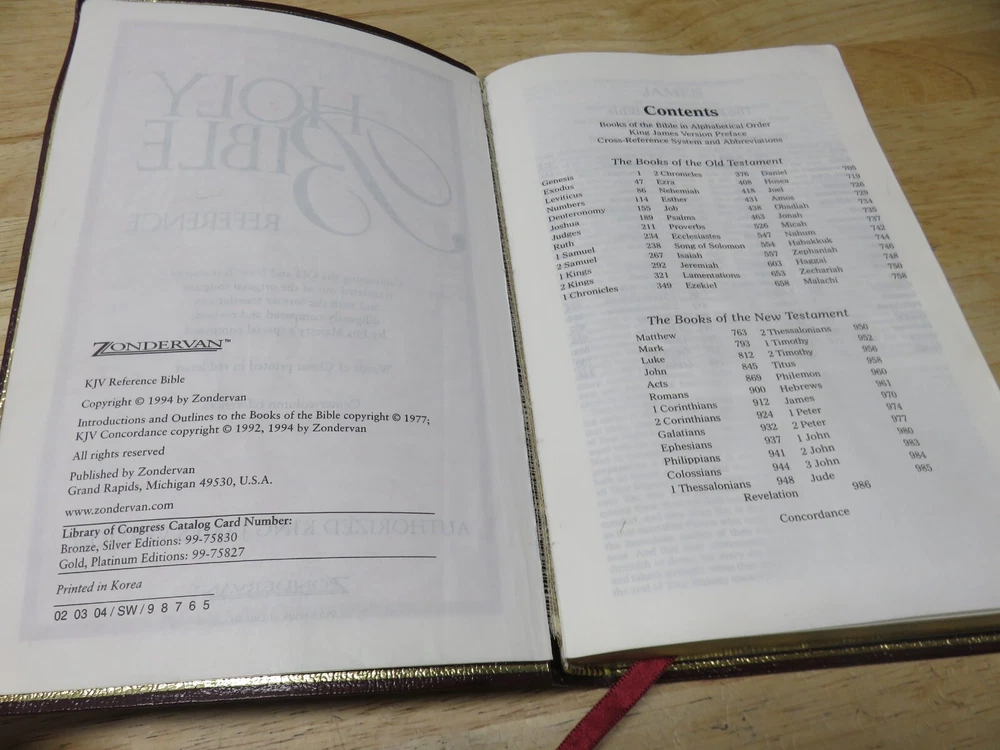 HOLY
BIBLE
REFERENCE
ZONDERVAN™
KJV Reference Bible
Copyright © 1994 by Zondervan
Introductions and Outlines to the Books of the Bible copyright © 1977;
KJV Concordance copyright © 1992, 1994 by Zondervan
All rights reserved
Published by Zondervan
Grand Rapids, Michigan 49530, U.S.A.
www.zondervan.com
Library of Congress Catalog Card Number:
Bronze, Silver Editions: 99-75830
Gold, Platinum Editions: 99-75827
Printed in Korea
02 03 04 / SW / 9 8 7 6 5
Contents
Books of the Bible in Alphabetical Order
King James Version Preface
Cross-Reference System and Abbreviations
The Books of the Old Testament
Genesis 1 2 Chronicles 376 Daniel 705
Exodus 47 Ezra 408 Hosea 719
Leviticus 86 Nehemiah 418 Joel 726
Numbers 114 Esther 431 Amos 729
Deuteronomy 155 Job 438 Obadiah 734
Joshua 189 Psalms 463 Jonah 735
Judges 211 Proverbs 526 Micah 737
Ruth 234 Ecclesiastes 547 Nahum 742
1 Samuel 238 Song of Solomon 554 Habakkuk 744
2 Samuel 267 Isaiah 557 Zephaniah 746
1 Kings 292 Jeremiah 603 Haggai 748
2 Kings 321 Lamentations 653 Zechariah 750
1 Chronicles 349 Ezekiel 658 Malachi 758
The Books of the New Testament
Matthew 763 2 Thessalonians 950
Mark 793 1 Timothy 952
Luke 812 2 Timothy 956
John 845 Titus 958
Acts 869 Philemon 960
Romans 900 Hebrews 961
1 Corinthians 912 James 970
2 Corinthians 924 1 Peter 974
Galatians 932 2 Peter 977
Ephesians 937 1 John 980
Philippians 941 2 John 983
Colossians 944 3 John 984
1 Thessalonians 948 Jude 985
Revelation 986
Concordance